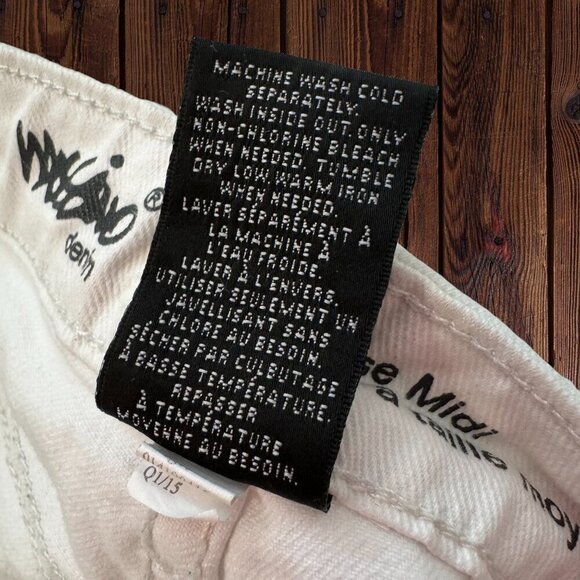 MACHINE WASH COLD
SEPARATELY.
WASH INSIDE OUT. ONLY
NON-CHLORINE BLEACH
WHEN NEEDED. TUMBLE
DRY LOW WARM IRON
WHEN NEEDED.
LAVER SEPARÉMENT À
LA MACHINE À
L'EAU FROIDE.
LAVER À L'ENVERS.
UTILISER SEULEMENT UN
JAVELLISANT SANS
CHLORE AU BESOIN.
SÉCHER PAR CULBUTAGE
À BASSE TEMPÉRATURE.
REPASSER
À TEMPÉRATURE
MOYENNE AU BESOIN.
mossimo®
denim
se Midi
a taille moy
Q1/15